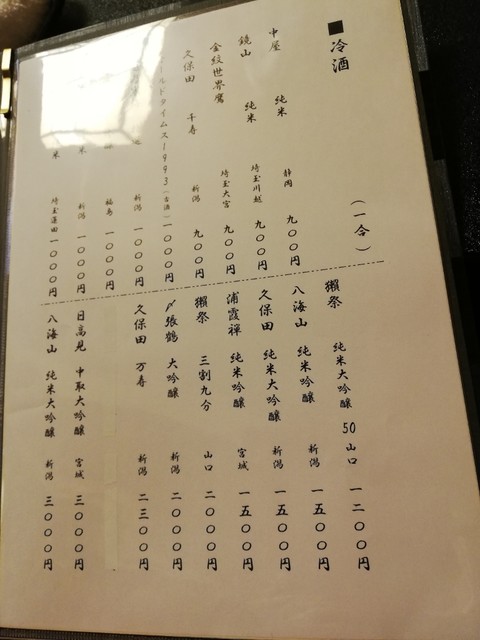 ■冷酒
(一合)
中屋 純米 静岡 九〇〇円
鏡山 純米 埼玉川越 九〇〇円
金紋世界鷹 埼玉大宮 九〇〇円
久保田 千寿 新潟 九〇〇円
ルドタイムス1993(古酒) 一〇〇〇円
新潟 一〇〇〇円
福島 一〇〇〇円
米 新潟 一〇〇〇円
米 埼玉蓮田 一〇〇〇円
獺祭 純米大吟醸 50 山口 一二〇〇円
八海山 純米吟醸 新潟 一五〇〇円
久保田 純米大吟醸 新潟 一五〇〇円
浦霞禅 純米吟醸 宮城 一五〇〇円
獺祭 三割九分 山口 二〇〇〇円
〆張鶴 大吟醸 新潟 二〇〇〇円
久保田 万寿 新潟 二三〇〇円
日高見 中取大吟醸 宮城 三〇〇〇円
八海山 純米大吟醸 新潟 三〇〇〇円